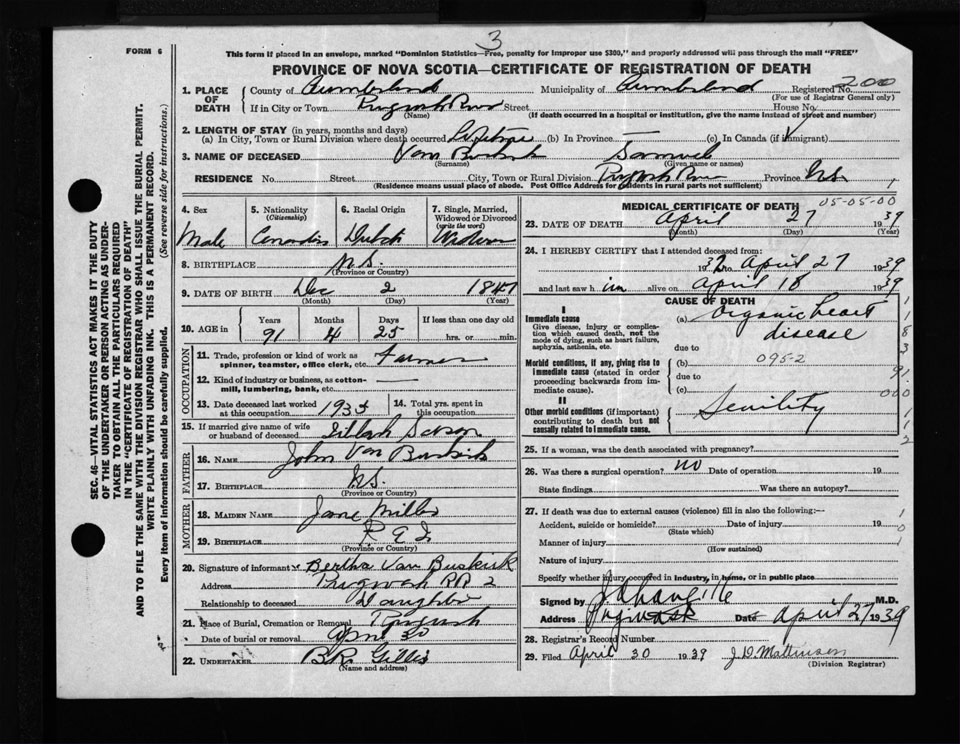 3
FORM 6
This form if placed in an envelope, marked "Dominion Statistics—Free, penalty for improper use $300," and properly addressed will pass through the mail "FREE"
PROVINCE OF NOVA SCOTIA—CERTIFICATE OF REGISTRATION OF DEATH
SEC. 46—VITAL STATISTICS ACT MAKES IT THE DUTY
OF THE UNDERTAKER OR PERSON ACTING AS UNDER-
TAKER TO OBTAIN ALL THE PARTICULARS REQUIRED
IN THE "CERTIFICATE OF REGISTRATION OF DEATH"
AND TO FILE THE SAME WITH THE DIVISION REGISTRAR WHO SHALL ISSUE THE BURIAL PERMIT.
WRITE PLAINLY WITH UNFADING INK. THIS IS A PERMANENT RECORD.
Every item of information should be carefully supplied. (See reverse side for instructions.)
1. PLACE OF DEATH County of Cumberland Municipality of Cumberland Registered No. 200
(For use of Registrar General only)
If in City or Town Pugwash River Street House No.
(Name) (If death occurred in a hospital or institution, give the name instead of street and number)
2. LENGTH OF STAY (in years, months and days)
(a) In City, Town or Rural Division where death occurred Lifetime (b) In Province — (c) In Canada (if immigrant)
3. NAME OF DECEASED Van Buskirk Samuel
(Surname) (Given name or names)
RESIDENCE No. Street City, Town or Rural Division Pugwash River Province N.S. 1
(Residence means usual place of abode. Post Office Address for residents in rural parts not sufficient)
4. Sex Male
5. Nationality (Citizenship) Canadian
6. Racial Origin Dutch
7. Single, Married, Widowed or Divorced (write the word) Widower
8. BIRTHPLACE N.S.
(Province or Country)
9. DATE OF BIRTH Dec 2 1847
(Month) (Day) (Year)
10. AGE in Years 91 Months 4 Days 25 If less than one day old
hrs. or min.
OCCUPATION
11. Trade, profession or kind of work as spinner, teamster, office clerk, etc. Farmer
12. Kind of industry or business, as cotton-mill, lumbering, bank, etc. —
13. Date deceased last worked at this occupation 193
14. Total yrs. spent in this occupation
15. If married give name of wife or husband of deceased
FATHER
16. NAME John Van Buskirk
17. BIRTHPLACE N.S.
(Province or Country)
MOTHER
18. MAIDEN NAME Jane Miller
19. BIRTHPLACE P E I
(Province or Country)
20. Signature of informant Bertha Van Buskirk
Address Pugwash RR 2
Relationship to deceased Daughter
21. Place of Burial, Cremation or Removal Pugwash
Date of burial or removal April 30
22. UNDERTAKER B.R. Gillis
(Name and address)
MEDICAL CERTIFICATE OF DEATH 05-05-00
23. DATE OF DEATH April 27 1939
(Month) (Day) (Year)
24. I HEREBY CERTIFY that I attended deceased from:
1937 to April 27 1939
and last saw him alive on April 18 1939
CAUSE OF DEATH
I
Immediate cause
Give disease, injury or complication which caused death, not the mode of dying, such as heart failure, asphyxia, asthenia, etc.
(a) Organic heart disease
due to
Morbid conditions, if any, giving rise to immediate cause (stated in order proceeding backwards from immediate cause).
(b) 095-2
due to
(c)
II
Other morbid conditions (if important) contributing to death but not causally related to immediate cause.
Senility
25. If a woman, was the death associated with pregnancy?
26. Was there a surgical operation? no Date of operation 19
State findings Was there an autopsy?
27. If death was due to external causes (violence) fill in also the following:—
Accident, suicide or homicide? Date of injury 19
(State which)
Manner of injury
(How sustained)
Nature of injury
Specify whether injury occurred in industry, in home, or in public place
Signed by M.D.
Address Pugwash Date April 27 1939
28. Registrar's Record Number
29. Filed April 30 1939 J.D. Mattinson
(Division Registrar)